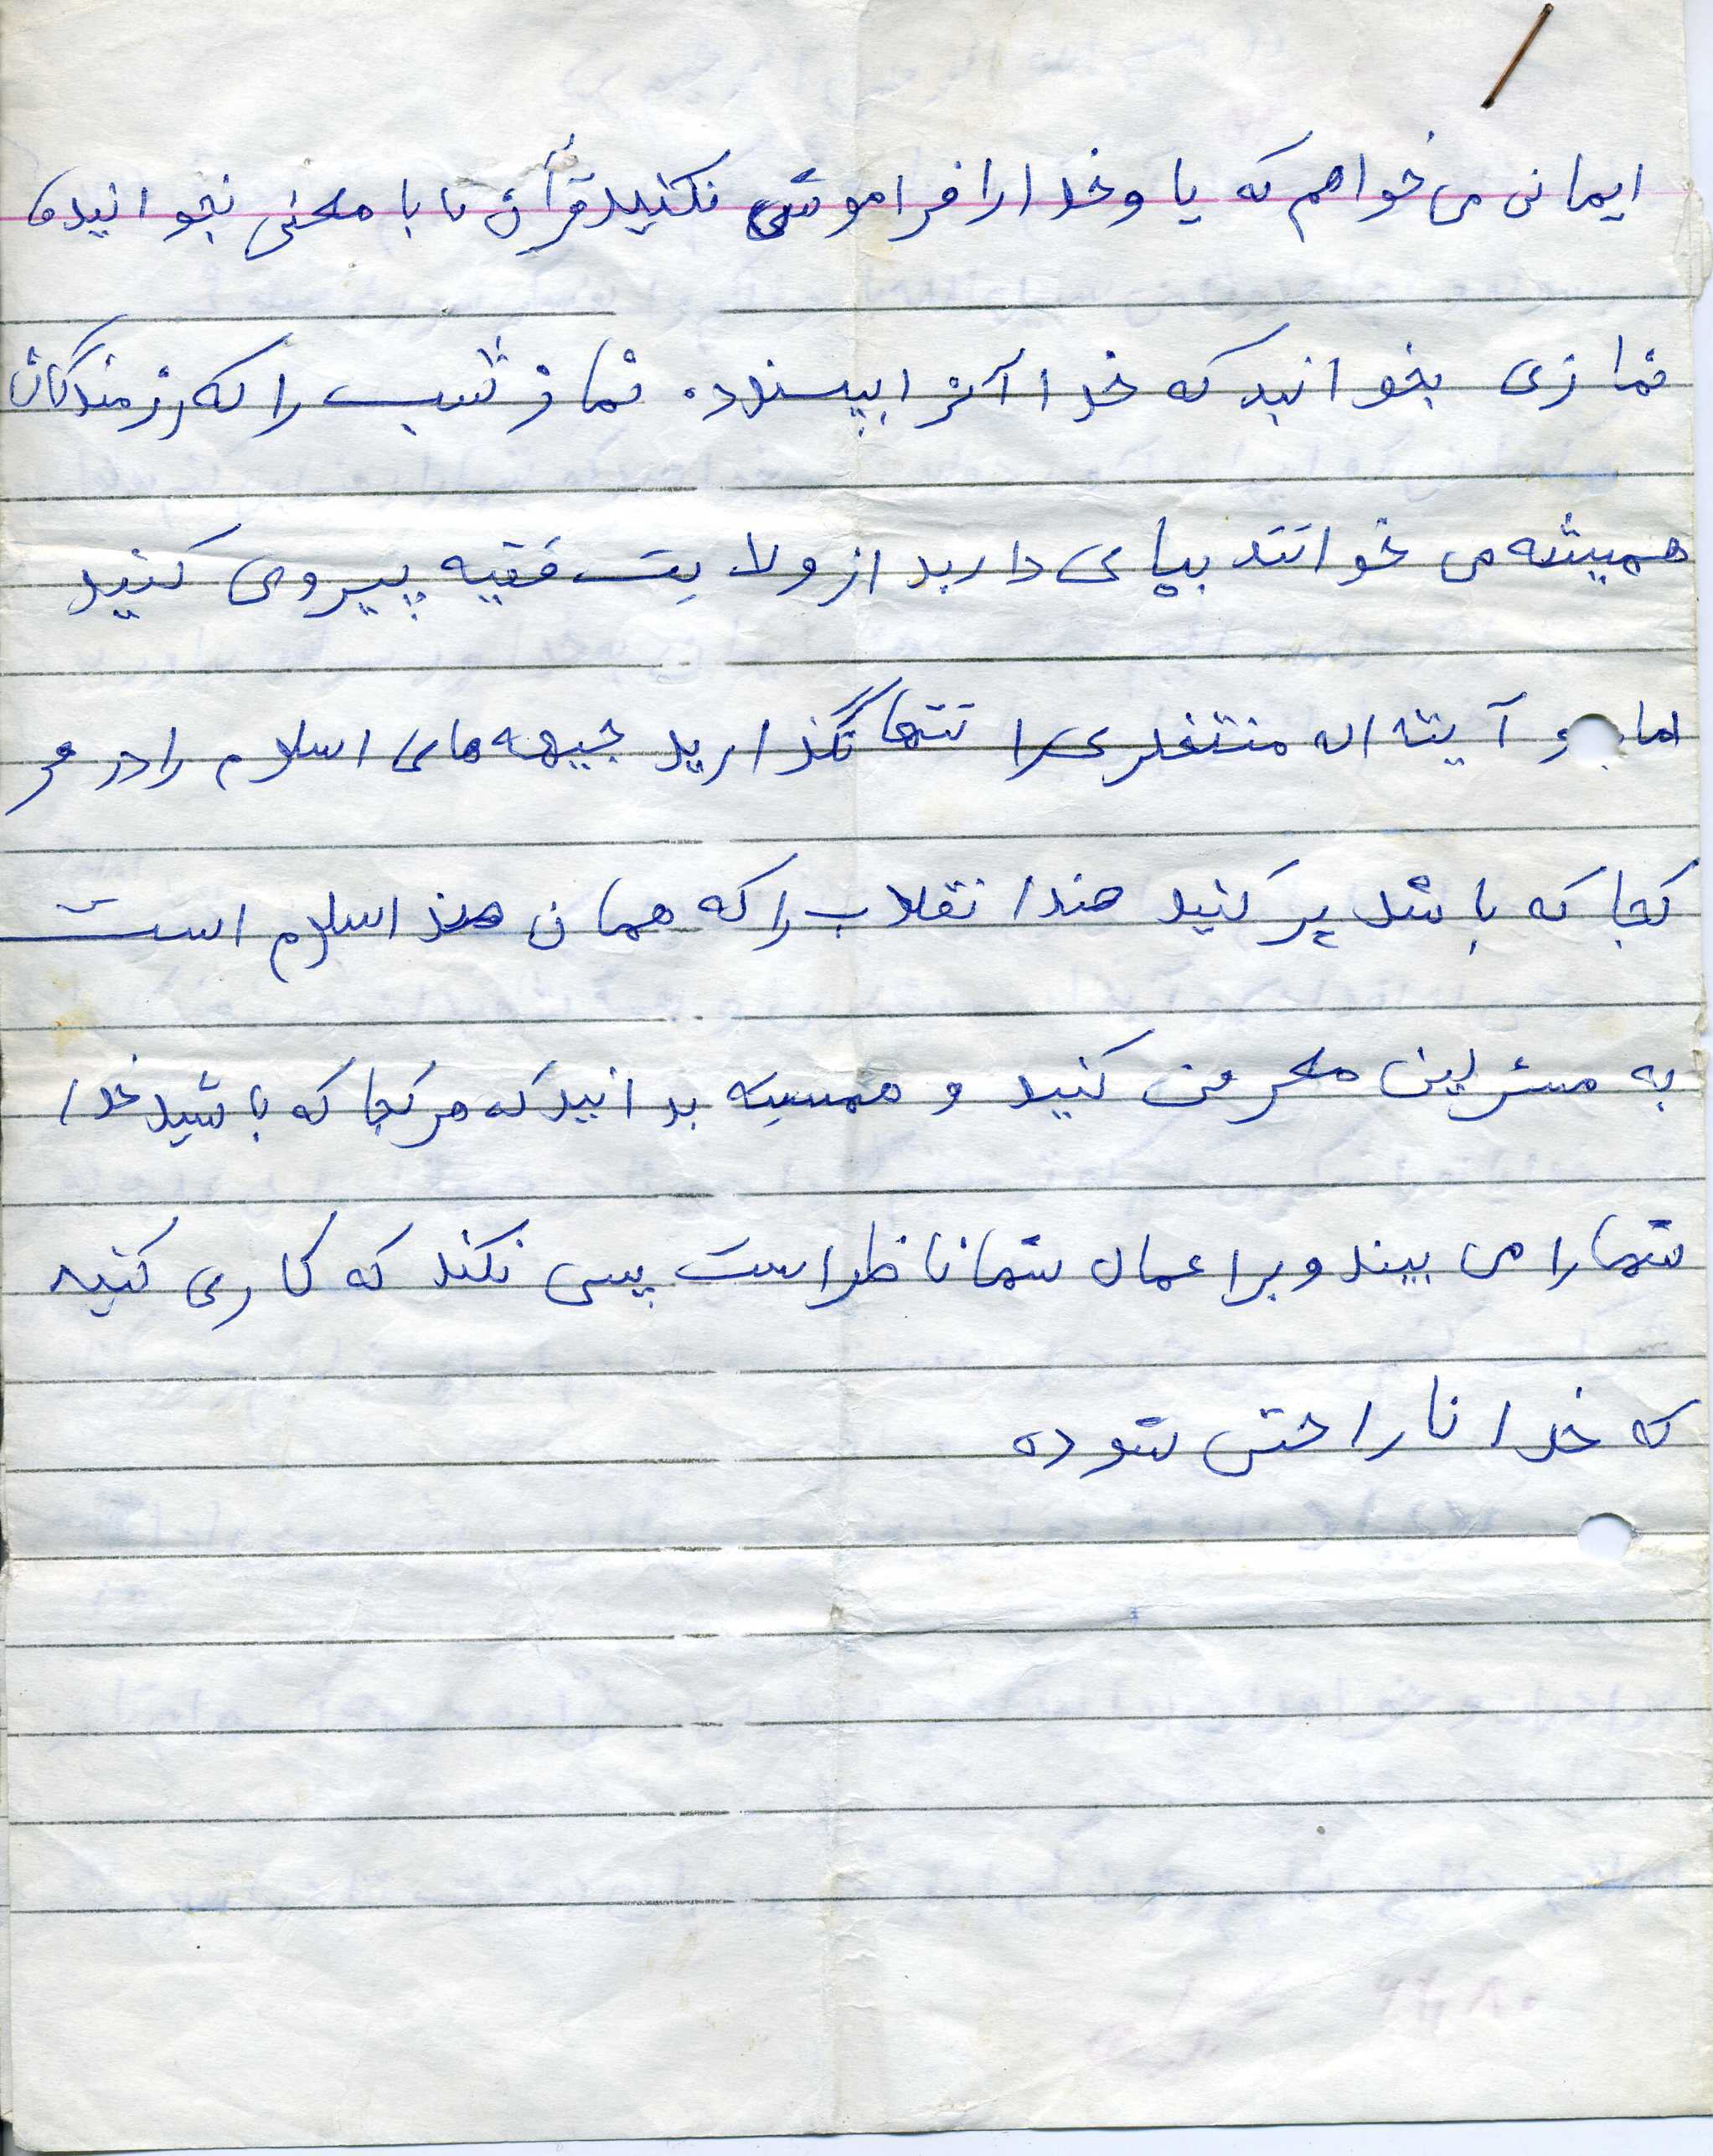 ایمانی می خواهم که یا وخدا را فراموش نکنید قرآن را با معنی بخوانید و
نمازی بخوانید که خدا آنرا بپسندد. نماز شب را که رزمندگان
همیشه می خوانند بپای دارید از ولایت فقیه پیروی کنید
امام و آیته اله منتظری را تنها نگذارید جبهه های اسلام را در هر
کجا که باشد پر کنید هندا نقلاب را که همان هند اسلام است
به کنید و همیشه بدانید که هر کجا که باشید خدا
شما را می بیند و بر اعمال شما ناظر است پس نکند که کاری کنید
که خدا ناراحتش شوده